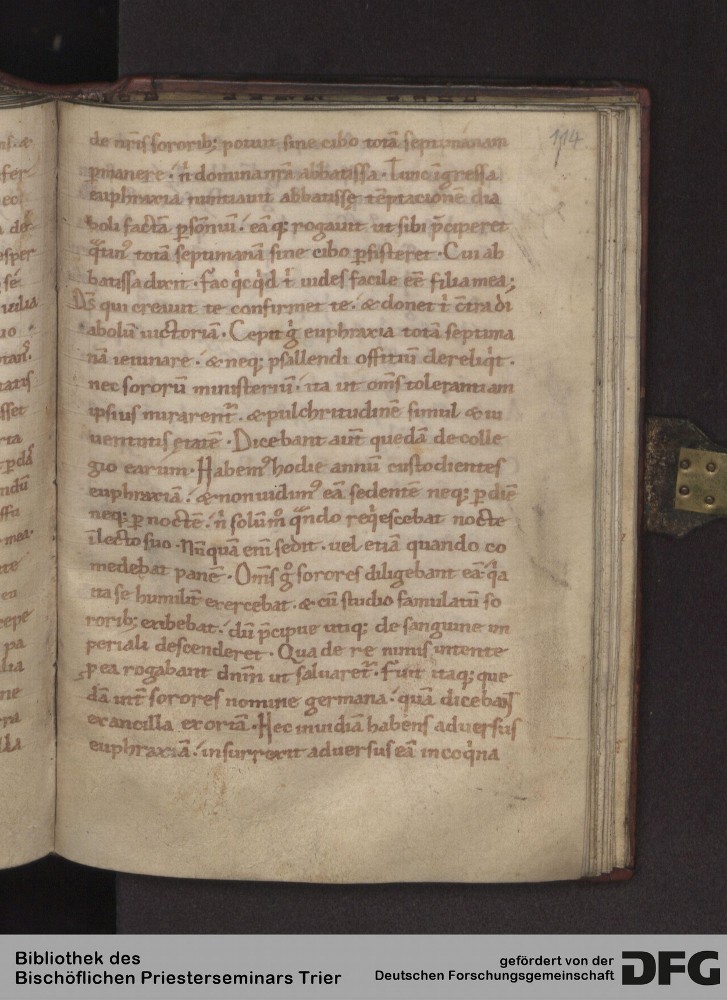 114
de nr̄is sororib; potuit sine cibo totā septimanam
p̄manere · n̄ domina nr̄a abbatissa · Tunc īgressa
euphraxia nuntiauit abbatissę tēptacionē dia
boli factā p̱ sōnium · eāq; rogauit ut sibi p̄ciperet
totā septimanā sine cibo p̱sisteret · Cui ab
batissa dixit · fac qͥcqͥd t̄ uides facile eē filia mea;
Ds̄ qui creauit te confirmet te · & donet t̄ c̄tra di
abolū uictoriā · Cepit gͥ euphraxia totā septima
nā ieiunare · & neq; psallendi offitiū dereliqͥt ·
nec sororū ministeriū · ita ut om̄s tolerantiam
ipsius mirarent̄ · & pulchritudinē simul & iu
uentutis ętatē · Dicebant aut̄ quedā de colle
gio earum · Habem᷒ hodie annū custodientes
euphraxiā · & non uidim᷒ eā sedentē neq; p̱ diē
neq; p̱ noctē · n̄ solūm̊ qͣndo reqͥescebat nocte
ī lecto suo · Nūquā eni sedit · uel etiā quando co
medebat panē · Om̄s gͦ sorores diligebant eā · qͥa
ita se humilit̄ exercebat · & cū studio famulatū so
rorib; exibebat · dū p̄cipue utiq; de sanguine im
periali descenderet · Qua de re nimis intente
p̱ ea rogabant dnm̄ ut saluaret̄ · Fuit itaq; que
dā int̄ sorores nomine germana · quā dicebant
ex ancilla exoriā · Hec inuidiā habens aduersus
euphraxiā · insurrexit aduersus eā in coqͥna
Bibliothek des
Bischöflichen Priesterseminars Trier
gefördert von der
Deutschen Forschungsgemeinschaft
DFG